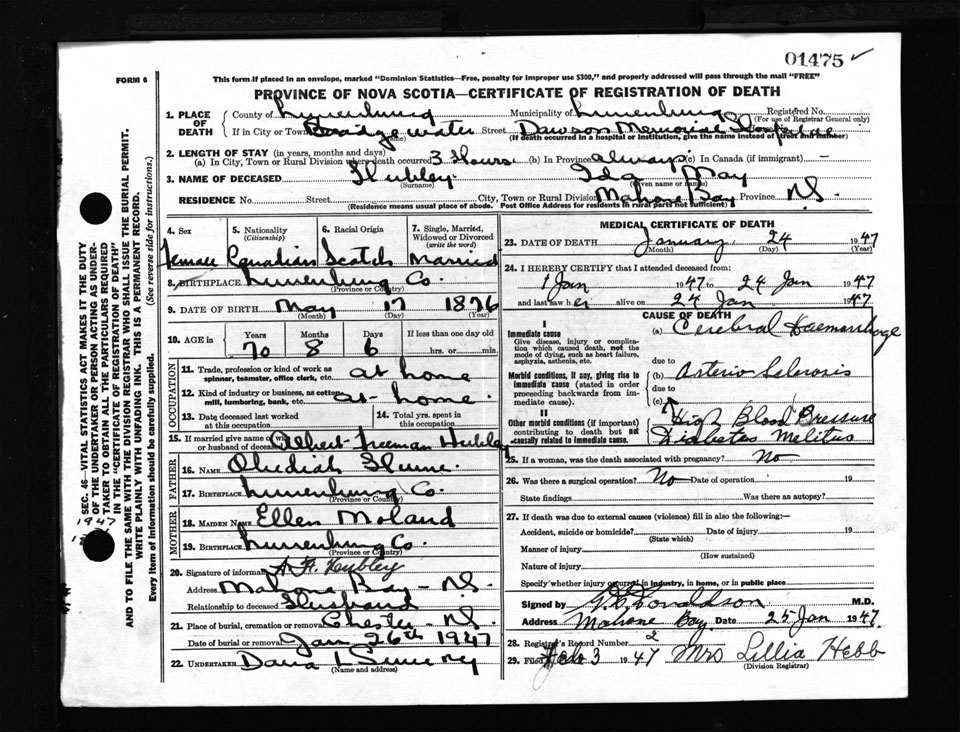 01475 ✓
FORM 6
This form if placed in an envelope, marked "Dominion Statistics—Free, penalty for improper use $300," and properly addressed will pass through the mail "FREE"
PROVINCE OF NOVA SCOTIA—CERTIFICATE OF REGISTRATION OF DEATH
1. PLACE OF DEATH County of Lunenburg Municipality of Lunenburg Registered No.
(For use of Registrar General only)
If in City or Town Bridgewater Street Dawson Memorial Hospital
(If death occurred in a hospital or institution, give the name instead of street and number)
2. LENGTH OF STAY (in years, months and days)
(a) In City, Town or Rural Division where death occurred 3 Hours (b) In Province always (c) In Canada (if immigrant) —
3. NAME OF DECEASED Hubley Ida May
(Surname) (Given name or names)
RESIDENCE No. Street City, Town or Rural Division Mahone Bay Province NS
(Residence means usual place of abode. Post Office Address for residents in rural parts not sufficient)
4. Sex 5. Nationality (Citizenship) 6. Racial Origin 7. Single, Married, Widowed or Divorced (write the word)
Female Canadian Scotch Married
8. BIRTHPLACE Lunenburg Co.
(Province or Country)
9. DATE OF BIRTH May 17 1876
(Month) (Day) (Year)
10. AGE in Years Months Days If less than one day old
70 8 6 hrs. or min.
OCCUPATION
11. Trade, profession or kind of work as spinner, teamster, office clerk, etc. at home
12. Kind of industry or business, as cotton mill, lumbering, bank, etc. at home
13. Date deceased last worked at this occupation 14. Total yrs. spent in this occupation
15. If married give name of wife or husband of deceased Albert Freeman Hubley
FATHER
16. NAME Obediah Slume
17. BIRTHPLACE Lunenburg Co.
(Province or Country)
MOTHER
18. MAIDEN NAME Ellen Moland
19. BIRTHPLACE Lunenburg Co.
(Province or Country)
20. Signature of informant A. F. Hubley
Address Mahone Bay - NS.
Relationship to deceased Husband
21. Place of burial, cremation or removal Chester - NS.
Date of burial or removal Jan 26th 1947
22. UNDERTAKER
(Name and address)
MEDICAL CERTIFICATE OF DEATH
23. DATE OF DEATH January 24 1947
(Month) (Day)
24. I HEREBY CERTIFY that I attended deceased from:
1 Jan 1947 to 24 Jan 1947
and last saw her alive on 24 Jan 1947
CAUSE OF DEATH
I
Immediate cause (a) Cerebral Haemorrhage
Give disease, injury or complication which caused death, not the mode of dying, such as heart failure, asphyxia, asthenia, etc.
due to
Morbid conditions, if any, giving rise to immediate cause (stated in order proceeding backwards from immediate cause).
(b) Arterio Sclerosis
due to
(c)
II
Other morbid conditions (if important) contributing to death but not causally related to immediate cause.
High Blood Pressure
Diabetes Melitus
25. If a woman, was the death associated with pregnancy? No
26. Was there a surgical operation? No Date of operation 19
State findings Was there an autopsy?
27. If death was due to external causes (violence) fill in also the following:—
Accident, suicide or homicide? Date of injury 19
(State which)
Manner of injury
(How sustained)
Nature of injury
Specify whether injury occurred in industry, in home, or in public place
Signed by Donaldson M.D.
Address Mahone Bay Date 25 Jan 1947.
28. Registrar's Record Number 2
29. Filed Feb 3 1947 Mrs Lillia Hebb
(Division Registrar)
SEC. 46—VITAL STATISTICS ACT MAKES IT THE DUTY
OF THE UNDERTAKER OR PERSON ACTING AS UNDERTAKER TO OBTAIN ALL THE PARTICULARS REQUIRED
IN THE "CERTIFICATE OF REGISTRATION OF DEATH"
AND TO FILE THE SAME WITH THE DIVISION REGISTRAR WHO SHALL ISSUE THE BURIAL PERMIT.
WRITE PLAINLY WITH UNFADING INK. THIS IS A PERMANENT RECORD.
Every item of information should be carefully supplied. (See reverse side for instructions.)
1947